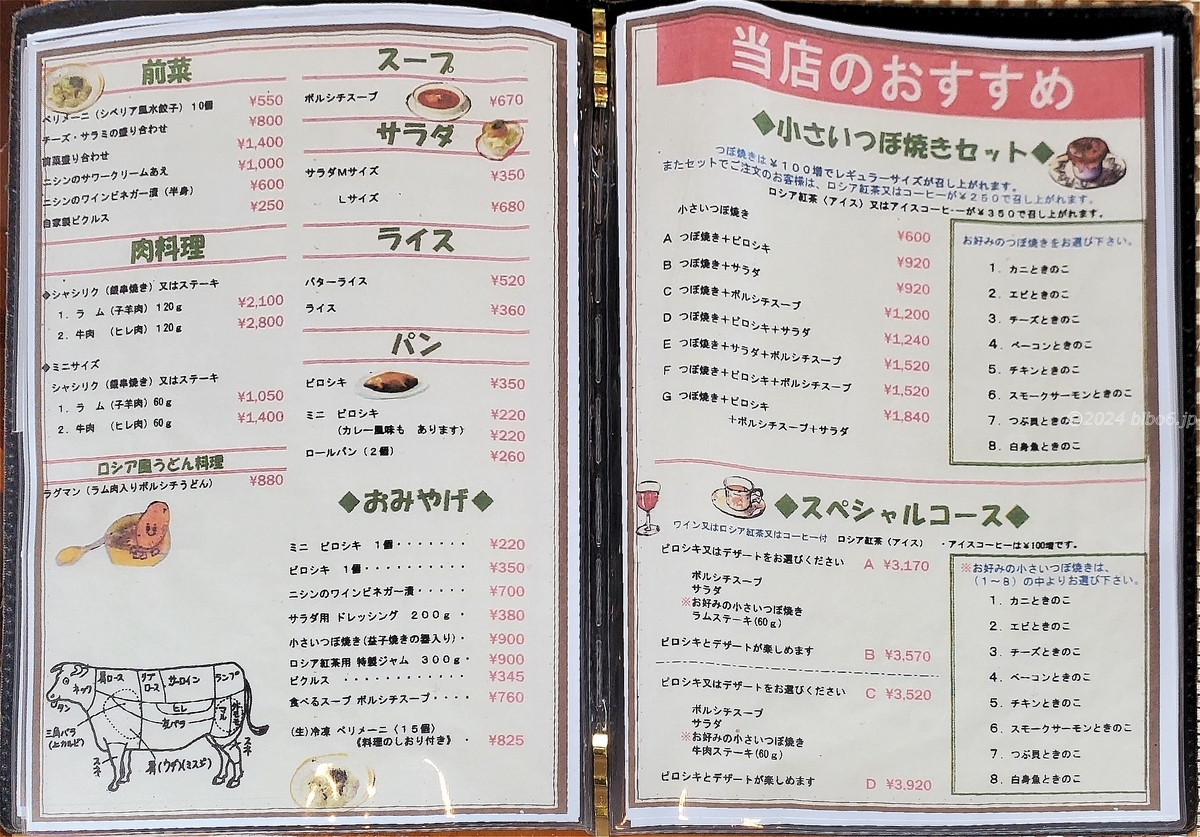 前菜
ペリメーニ（シベリア風水餃子）10個 ¥550
チーズ・サラミの盛り合わせ ¥800
前菜盛り合わせ ¥1,400
ニシンのサワークリームあえ ¥1,000
ニシンのワインビネガー漬（半身） ¥600
自家製ピクルス ¥250
肉料理
◆シャシリク（銀串焼き）又はステーキ
1．ラ ム（子羊肉）120g ¥2,100
2．牛肉 （ヒレ肉）120g ¥2,800
◆ミニサイズ
シャシリク（銀串焼き）又はステーキ
1．ラ ム（子羊肉）60g ¥1,050
2．牛肉 （ヒレ肉）60g ¥1,400
ロシア風うどん料理
ラグマン（ラム肉入りボルシチうどん） ¥880
ネック
肩ロース
リブロース
サーロイン
ランプ
タン
ヒレ
友バラ
マル
三角バラ
(上カルビ)
スネ
肩(ウデ)(ミスジ)
スネ
スープ
ボルシチスープ ¥670
サラダ
サラダMサイズ ¥350
Lサイズ ¥680
ライス
バターライス ¥520
ライス ¥360
パン
ピロシキ ¥350
ミニ ピロシキ ¥220
（カレー風味も あります） ¥220
ロールパン（2個） ¥260
◆おみやげ◆
ミニ ピロシキ 1個・・・・・・・ ¥220
ピロシキ 1個・・・・・・・・・ ¥350
ニシンのワインビネガー漬・・・・・ ¥700
サラダ用 ドレッシング 200g・ ¥380
小さいつぼ焼き(益子焼きの器入り)・ ¥900
ロシア紅茶用 特製ジャム 300g・ ¥900
ピクルス ・・・・・・・・・・・・ ¥345
食べるスープ ボルシチスープ・・・・ ¥760
(生)冷凍 ペリメーニ（15個）
《料理のしおり付き》 ・ ¥825
当店のおすすめ
◆小さいつぼ焼きセット◆
つぼ焼きは¥100増でレギュラーサイズが召し上がれます。
またセットでご注文のお客様は、ロシア紅茶又はコーヒーが¥250で召し上がれます。
ロシア紅茶（アイス）又はアイスコーヒーが¥350で召し上がれます。
小さいつぼ焼き ¥600
A つぼ焼き＋ピロシキ ¥920
B つぼ焼き＋サラダ ¥920
C つぼ焼き＋ボルシチスープ ¥1,200
D つぼ焼き＋ピロシキ＋サラダ ¥1,240
E つぼ焼き＋サラダ＋ボルシチスープ ¥1,520
F つぼ焼き＋ピロシキ＋ボルシチスープ ¥1,520
G つぼ焼き＋ピロシキ
＋ボルシチスープ＋サラダ ¥1,840
お好みのつぼ焼きをお選び下さい。
1．カニときのこ
2．エビときのこ
3．チーズときのこ
4．ベーコンときのこ
5．チキンときのこ
6．スモークサーモンときのこ
7．つぶ貝ときのこ
8．白身魚ときのこ
©2024 bibo6.jp
◆スペシャルコース◆
ワイン又はロシア紅茶又はコーヒー付 ロシア紅茶（アイス） ・アイスコーヒーは¥100増です。
ピロシキ又はデザートをお選びください A ¥3,170
ボルシチスープ
サラダ
※お好みの小さいつぼ焼き
ラムステーキ(60g)
ピロシキとデザートが楽しめます B ¥3,570
ピロシキ又はデザートをお選びください C ¥3,520
ボルシチスープ
サラダ
※お好みの小さいつぼ焼き
牛肉ステーキ(60g)
ピロシキとデザートが楽しめます D ¥3.920
※お好みの小さいつぼ焼きは、
（1～8）の中よりお選び下さい。
1．カニときのこ
2．エビときのこ
3．チーズときのこ
4．ベーコンときのこ
5．チキンときのこ
6．スモークサーモンときのこ
7．つぶ貝ときのこ
8．白身魚ときのこ